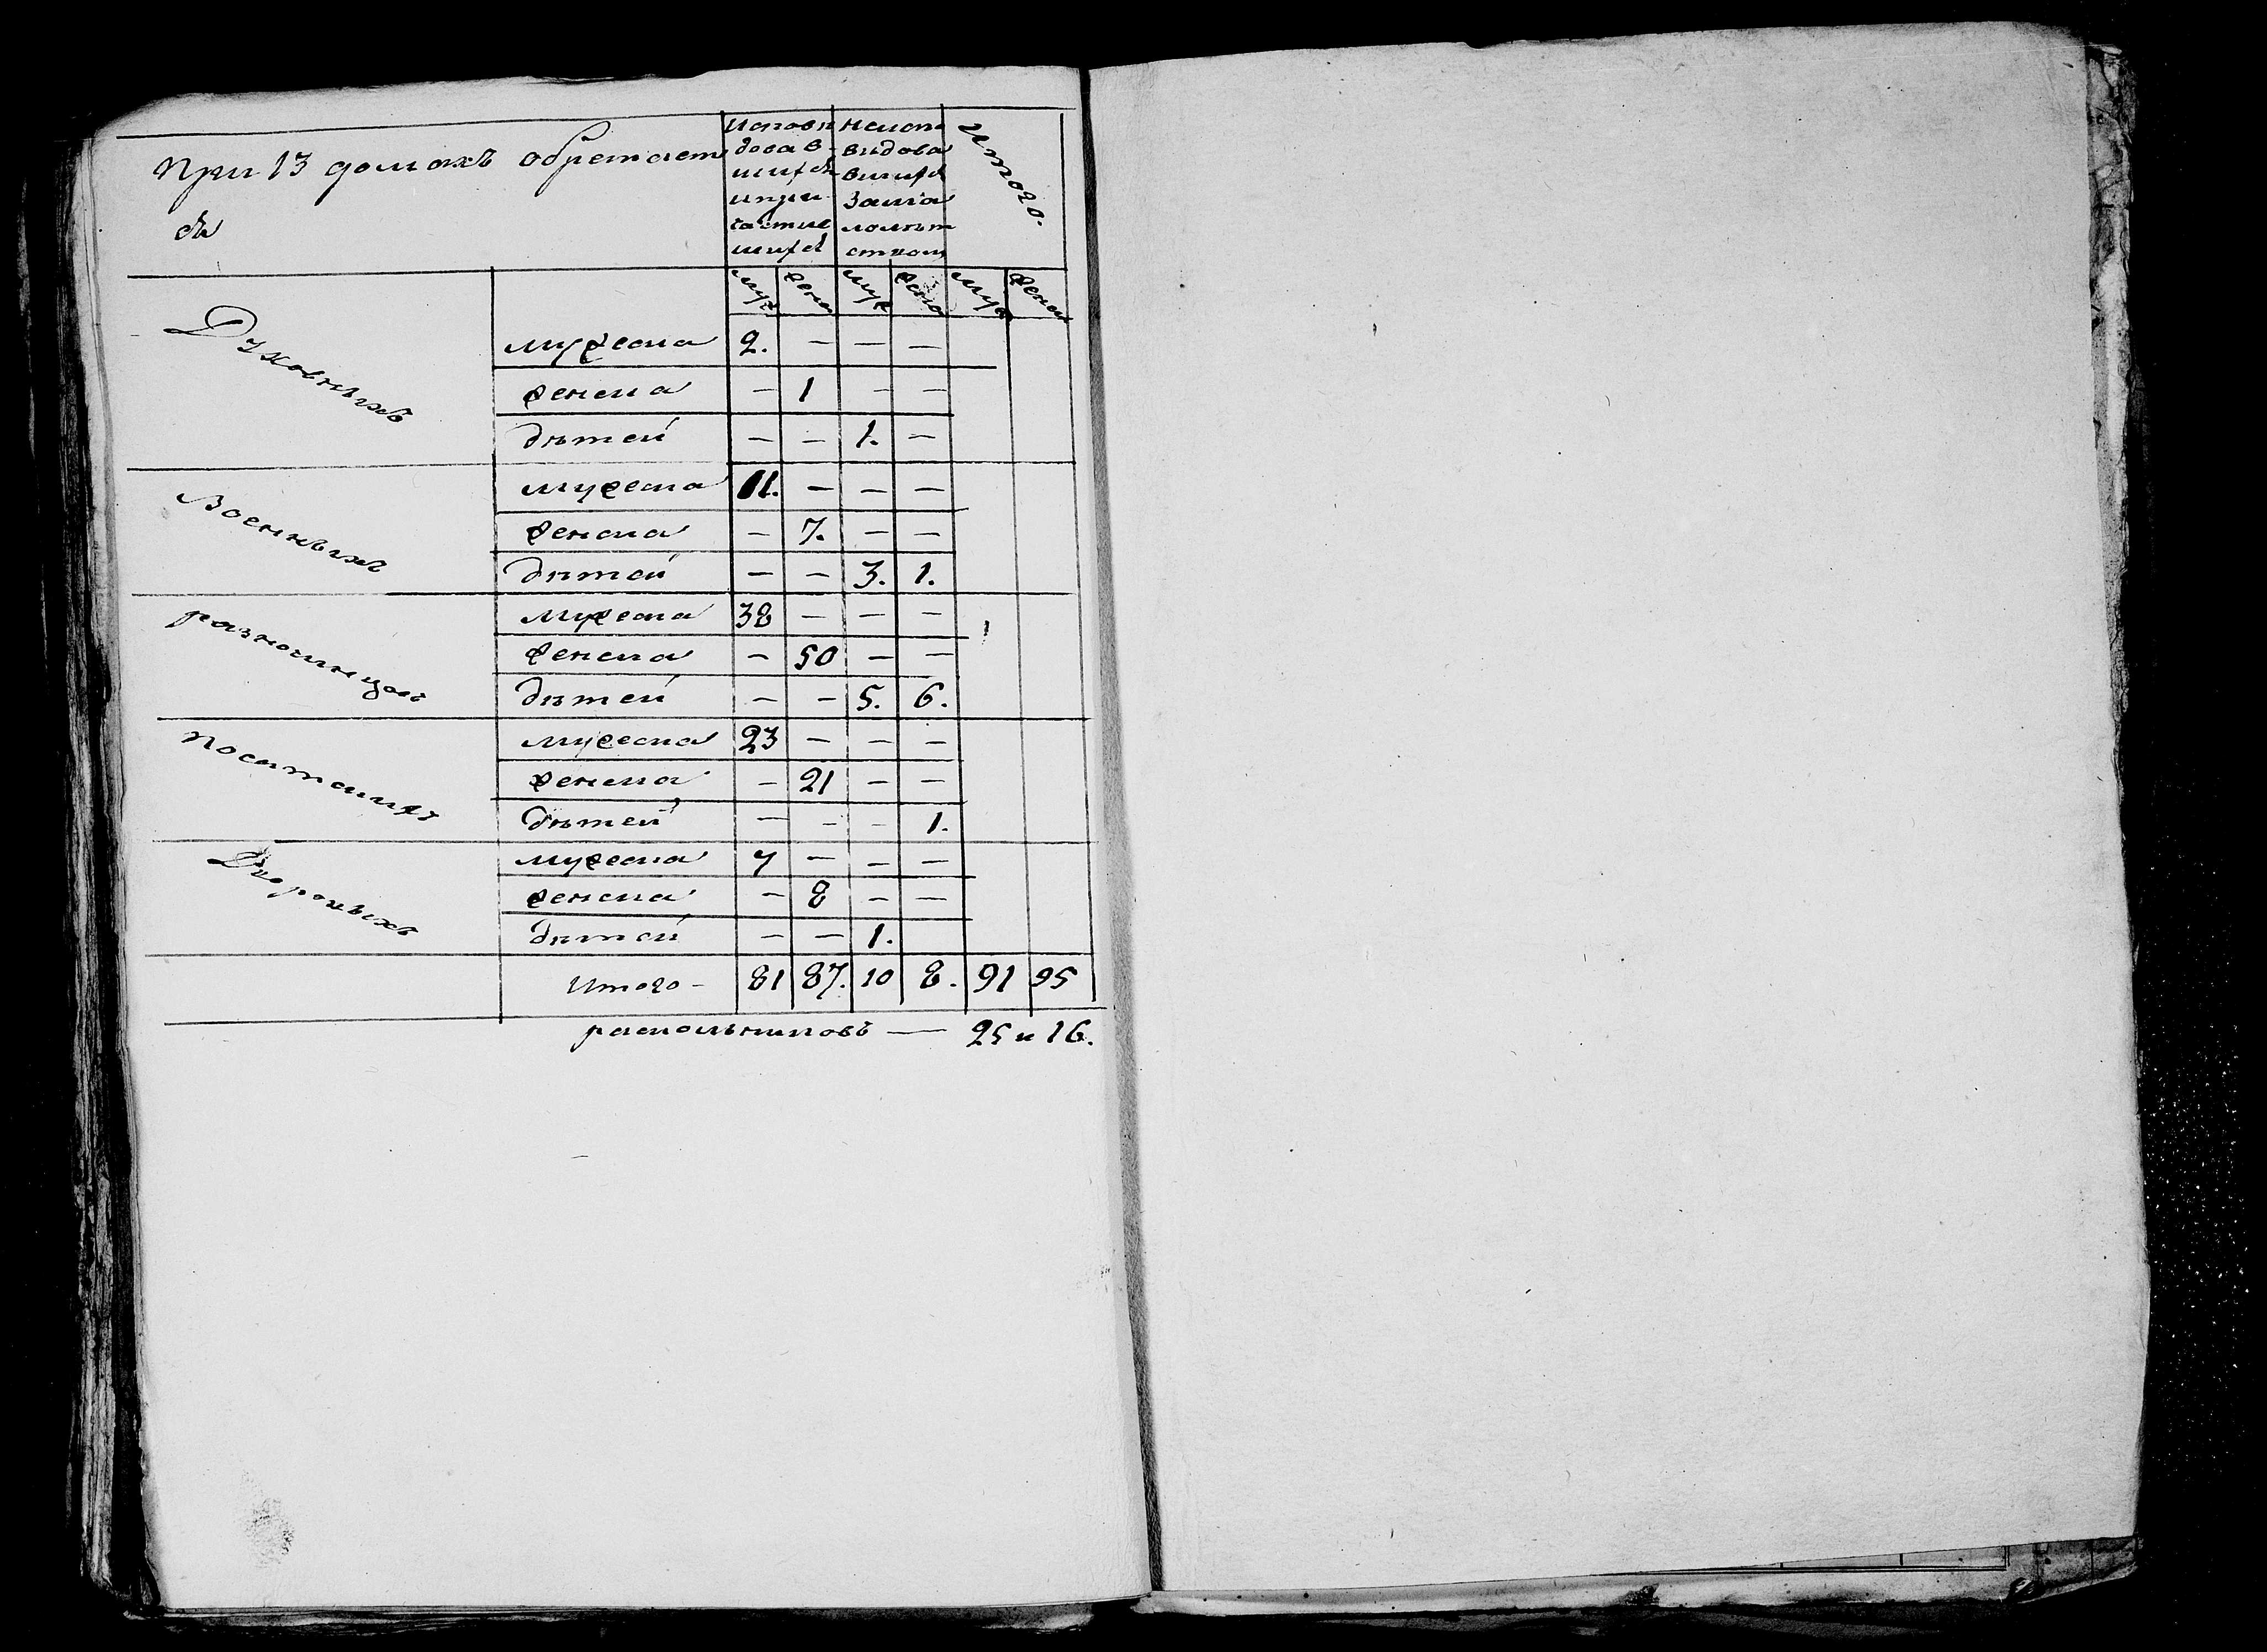 При 13 домахъ обретает
ся
Исповѣ
довав
шихся
и при
частив
шихся
Неиспо
видова
вшихся
за мало
лѣтством
Итого.
муж женс муж женс муж женск
Духовныхъ
мужеска 2. — — —
женска — 1 — —
дѣтей — — 1. —
Военныхъ
мужеска 11. — — —
женска — 7. — —
дѣтей — — 3. 1.
разночинцовъ
мужеска 38 — — —
женска — 50 — —
дѣтей — — 5. 6.
Посатскихъ
мужеска 23 — — —
женска — 21 — —
дѣтей — — — 1.
Дворовыхъ
мужеска 7 — — —
женска — 8 — —
дѣтей — — 1.
Итого — 81 87. 10 8. 91 95
раскольниковъ — 25 и 16.